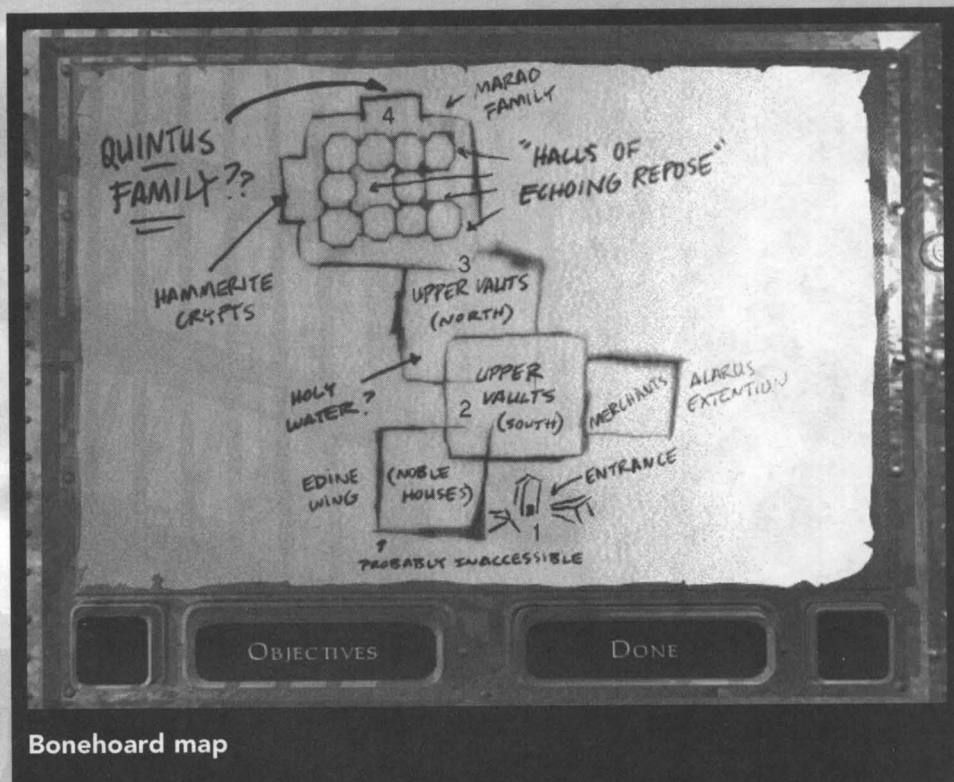 MARAO
FAMILY
4
QUINTUS
FAMILY??
"HALLS OF
ECHOING REPOSE"
HAMMERITE
CRYPTS
3
UPPER VAULTS
(NORTH)
HOLY
WATER?
UPPER
VAULTS
2
(SOUTH)
MERCHANTS
ALARUS
EXTENTION
EDINE
WING
(NOBLE
HOUSES)
ENTRANCE
1
PROBABLY INACCESSIBLE
OBJECTIVES
DONE
Bonehoard map